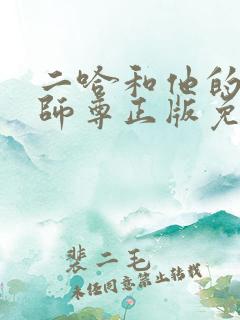 二哈和他的
師尊正版免
裴二毛
未经同意禁止转载